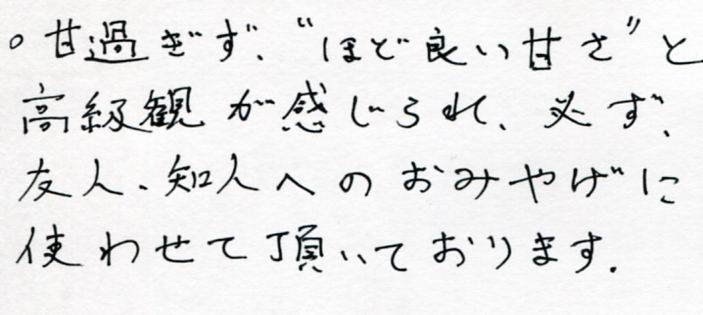 。甘過ぎず、“ほど良い甘さ”と
高級観が感じられ、必ず、
友人、知人へのおみやげに
使わせて頂いております.